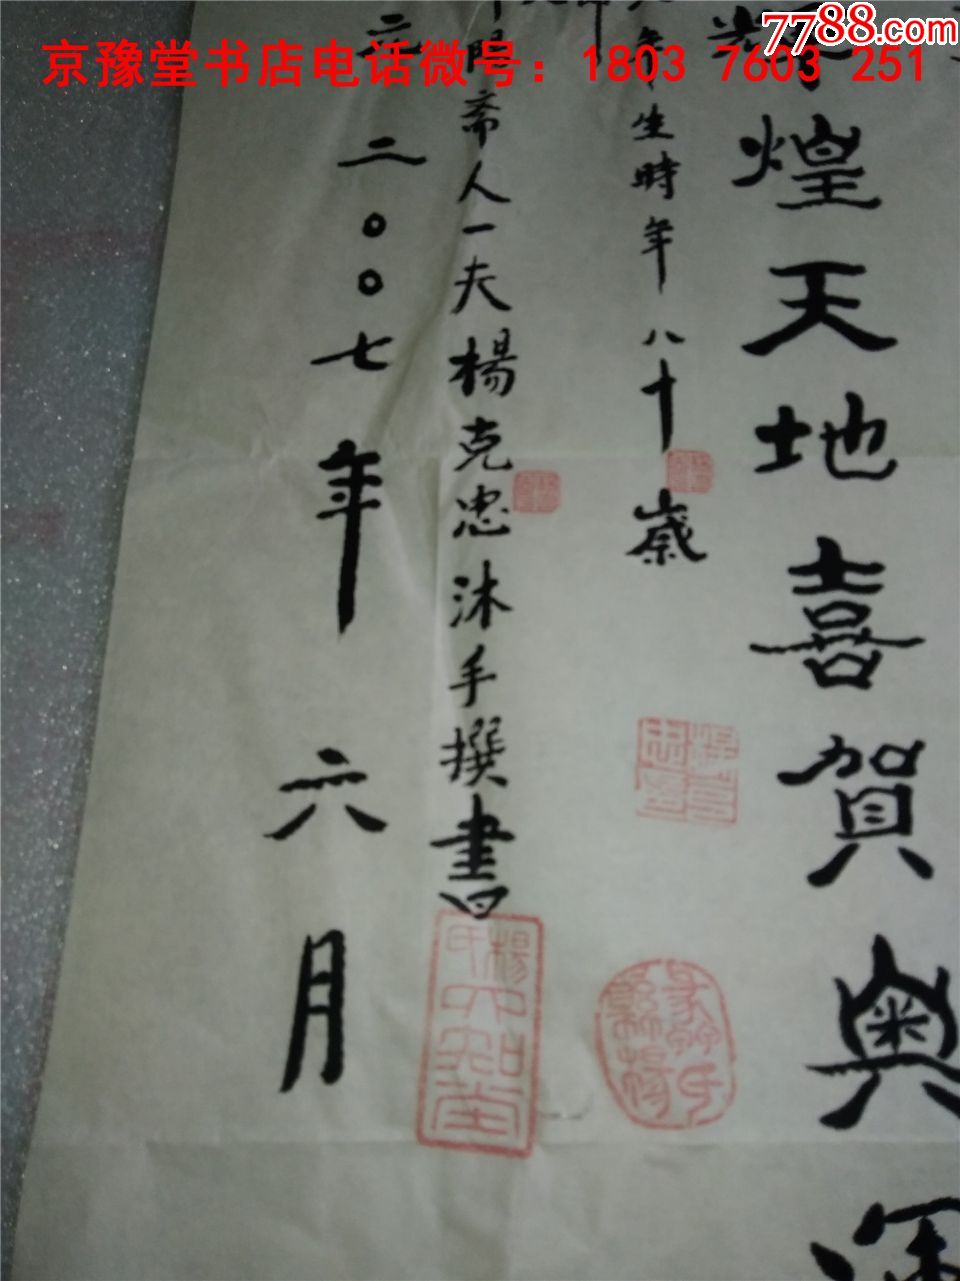 7788.com
京豫堂书店电话微号：1803 7603 251
煌天地喜賀奥運
年生時年八十歲
斋人一夫楊克忠沐手撰書
二〇〇七年六月
楊氏四知堂